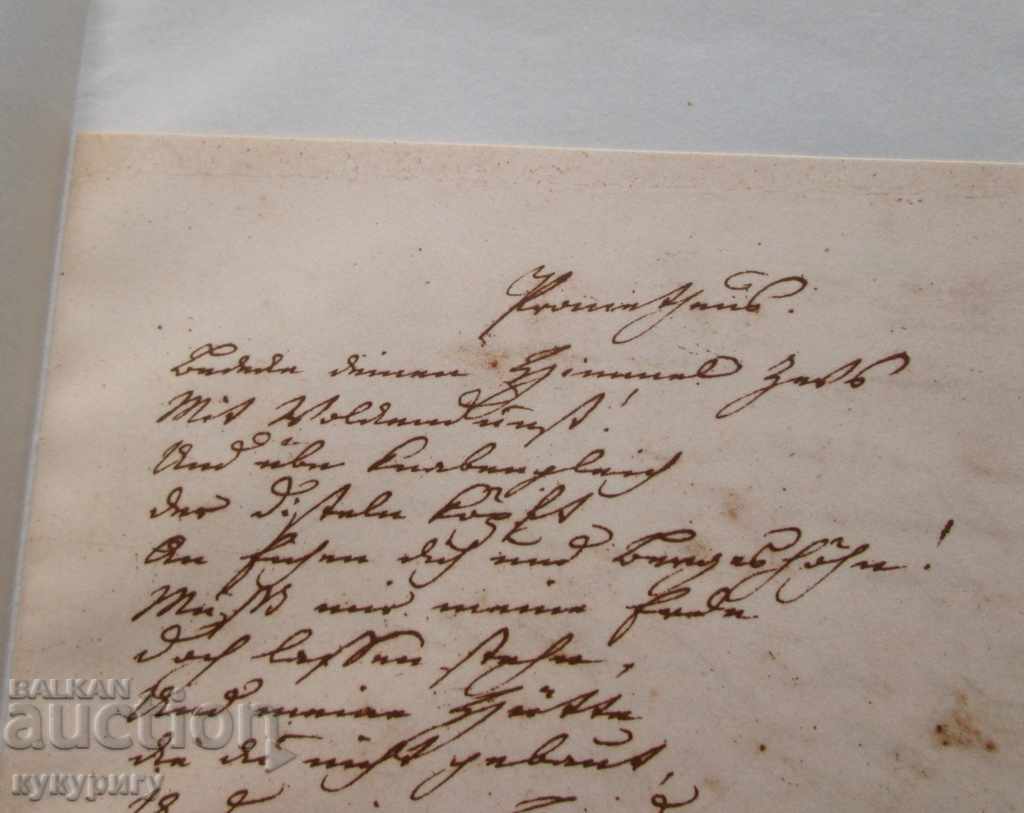 Prometheus.
Bedecke deinen Himmel Zevs
Mit Wolckendunst!
Und übe Knabengleich
der Disteln köpft
An Eichen dich und Bergeshöhn!
Mußt mir meine Erde
doch lassen stehn,
Und meine Hütte
die du nicht gebaut,
BALKAN
auction
кукуригу